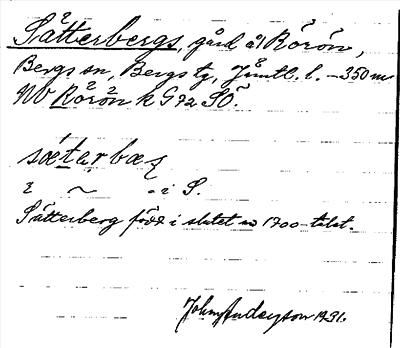 Sätterbergs, gård å Rörön,
Bergs sn, Bergs tg, Jämtl. l. – 350 m
NV Rörön k G 72 SO.
sæterbæ
i ~ - i S.
Sätterberg född i slutet av 1700-talet.
John Anderson 1931.